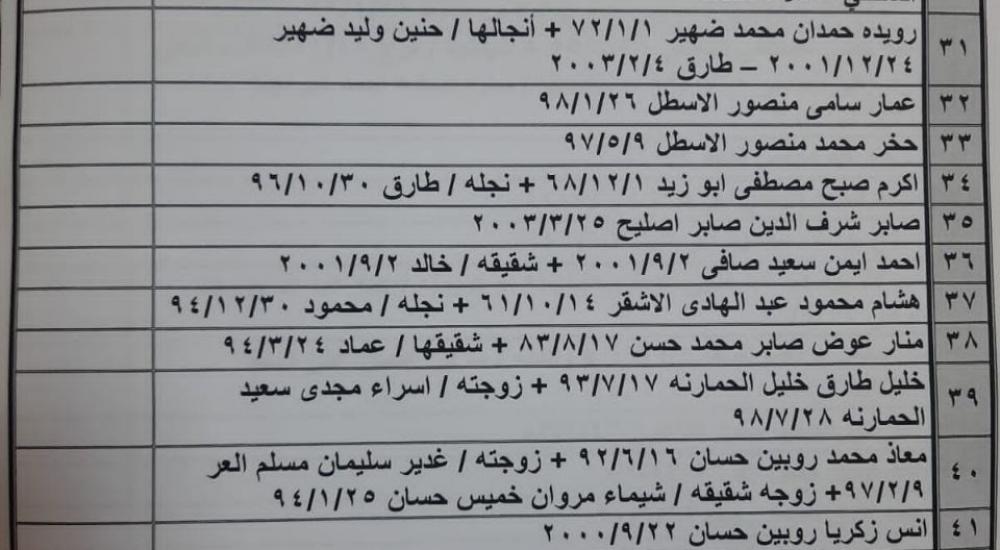 ٣١ رويده حمدان محمد ضهير ٧٢/١/١ + أنجالها / حنين وليد ضهير
٢٠٠١/١٢/٢٤ – طارق ٢٠٠٣/٢/٤
٣٢ عمار سامى منصور الاسطل ٩٨/١/٢٦
٣٣ حخر محمد منصور الاسطل ٩٧/٥/٩
٣٤ اكرم صبح مصطفى ابو زيد ٦٨/١٢/١ + نجله / طارق ٩٦/١٠/٣٠
٣٥ صابر شرف الدين صابر اصليح ٢٠٠٣/٣/٢٥
٣٦ احمد ايمن سعيد صافى ٢٠٠١/٩/٢ + شقيقه / خالد ٢٠٠١/٩/٢
٣٧ هشام محمود عبد الهادى الاشقر ٦١/١٠/١٤ + نجله / محمود ٩٤/١٢/٣٠
٣٨ منار عوض صابر محمد حسن ٨٣/٨/١٧ + شقيقها / عماد ٩٤/٣/٢٤
٣٩ خليل طارق خليل الحمارنه ٩٣/٧/١٧ + زوجته / اسراء مجدى سعيد
الحمارنه ٩٨/٧/٢٨
٤٠ معاذ محمد روبين حسان ٩٢/٦/١٦ + زوجته / غدير سليمان مسلم العر
٩٧/٢/٩+ زوجه شقيقه / شيماء مروان خميس حسان ٩٤/١/٢٥
٤١ انس زكريا روبين حسان ٢٠٠٠/٩/٢٢